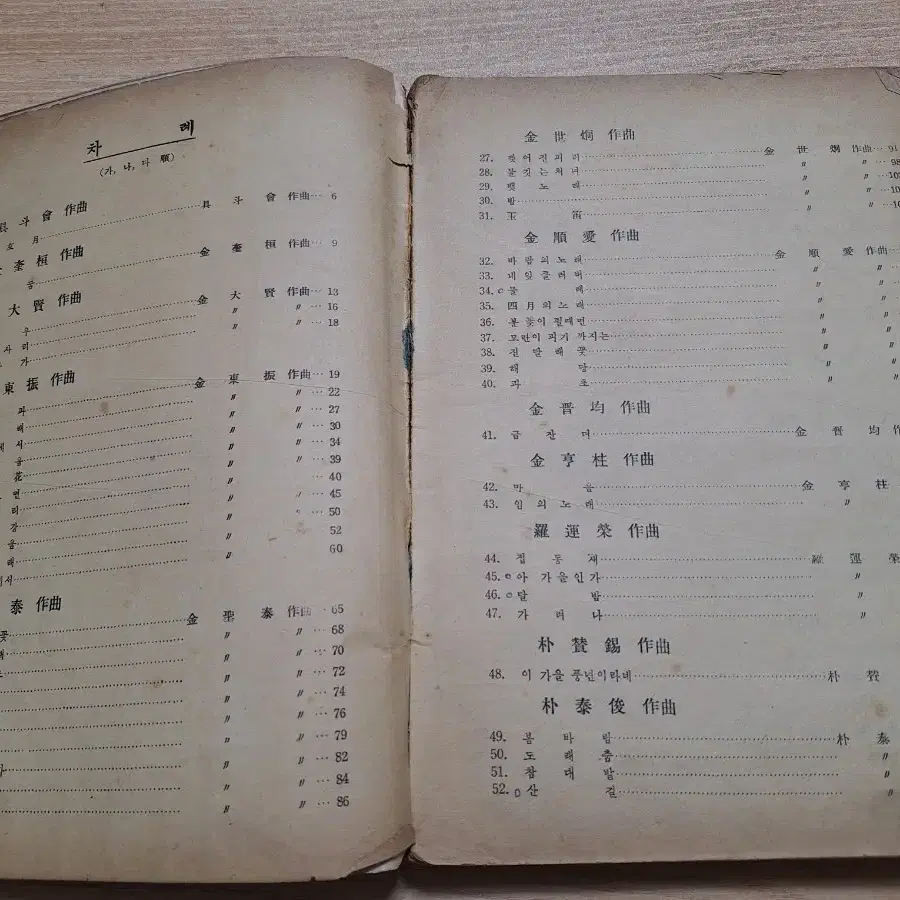 차 례
(가, 나, 다 順)
具 斗 會 作曲
女 月 具 斗 會 作曲 6
金 奎 桓 作曲
金 奎 桓 作曲 9
大 賢 作曲
金 大 賢 作曲 13
사 리 〃 〃 16
가 〃 〃 18
東 振 作曲
파 金 東 振 作曲 19
해 〃 〃 22
서 〃 〃 27
음 〃 〃 30
花 〃 〃 34
면 〃 〃 39
리 〃 40
강 〃 〃 45
움 〃 50
해 〃 52
서 〃 60
泰 作曲
꽃 金 聖 泰 作曲 65
〃 〃 68
〃 〃 70
〃 〃 72
〃 〃 74
〃 〃 76
〃 〃 79
〃 〃 82
〃 〃 84
〃 〃 86
金 世 炯 作曲
27. 찢어진피리 金 世 炯 作曲 91
28. 물깃는처녀 〃 〃 98
29. 뱃 노 래 〃 〃
30. 밤 〃 〃
31. 玉 笛 〃 〃
金 順 愛 作曲
32. 바람의노래 金 順 愛 作曲
33. 네잎클러버 〃 〃
34. 물 레 〃 〃
35. 四月의노래 〃 〃
36. 봄 꽃이 필때면 〃 〃
37. 모란이 피기 까지는 〃 〃
38. 진 달 래 꽃 〃 〃
39. 해 당 〃 〃
40. 파 초 〃 〃
金 晋 均 作曲
41. 금 잔 디 金 晋 均 作
金 亨 柱 作曲
42. 마 음 金 亨 柱
43. 임의노래 〃
羅 運 榮 作曲
44. 접 동 새 羅 運 榮
45. 아 가을인가 〃
46. 달 밤 〃
47. 가 려 나 〃
朴 贊 錫 作曲
48. 이 가을 풍년이라네 朴 贊
朴 泰 俊 作曲
49. 봄 바 람 朴 泰
50. 도 래 춤 〃
51. 참 대 밭 〃
52. 산 길 〃